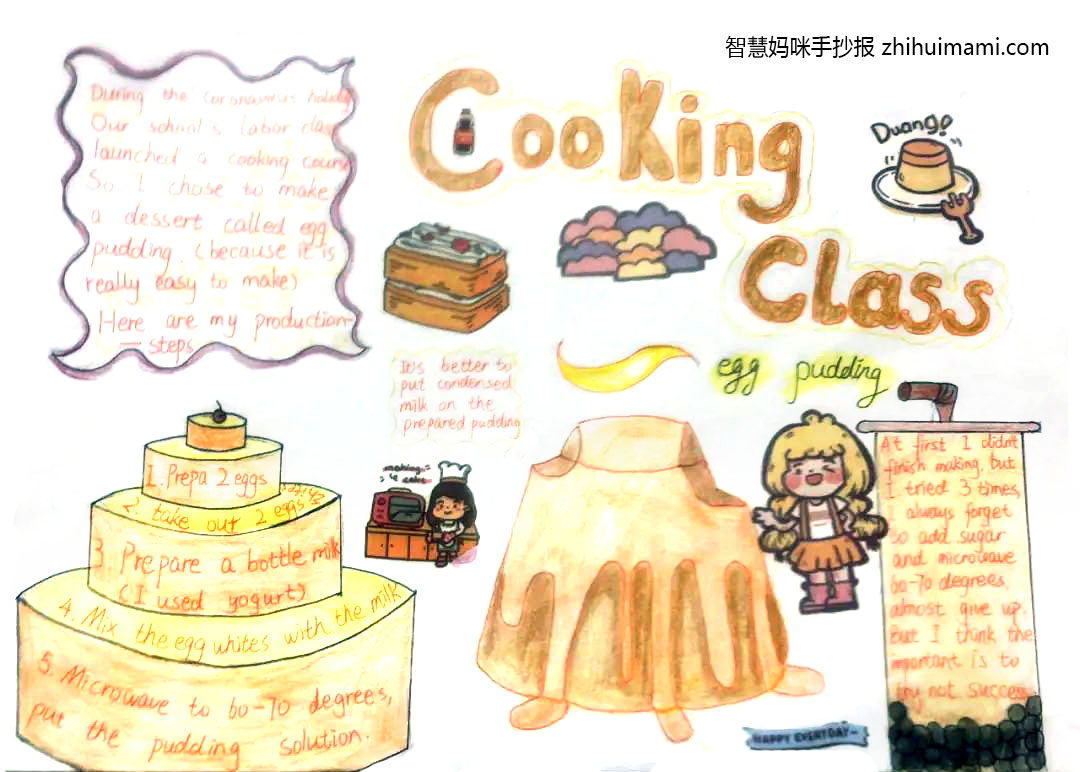 智慧妈咪手抄报 zhihuimami.com
Cooking
Class
Duang!
During the coronavirus holiday
Our school's labor class
launched a cooking course
So I chose to make
a dessert called egg
pudding. (because it is
really easy to make)
Here are my production
— steps
It's better to
put condensed
milk on the
prepared pudding
egg pudding
making
a cake
1. Prepa 2 eggs
2. take out 2 eggs' whites
3. Prepare a bottle milk
(I used yogurt)
4. Mix the egg whites with the milk
5. Microwave to 60-70 degrees,
put the pudding solution.
At first I didn't
finish making, but
I tried 3 times,
I always forget
to add sugar
and microwave
60-70 degrees,
almost give up.
But I think the
important is to
try not success
HAPPY EVERYDAY~